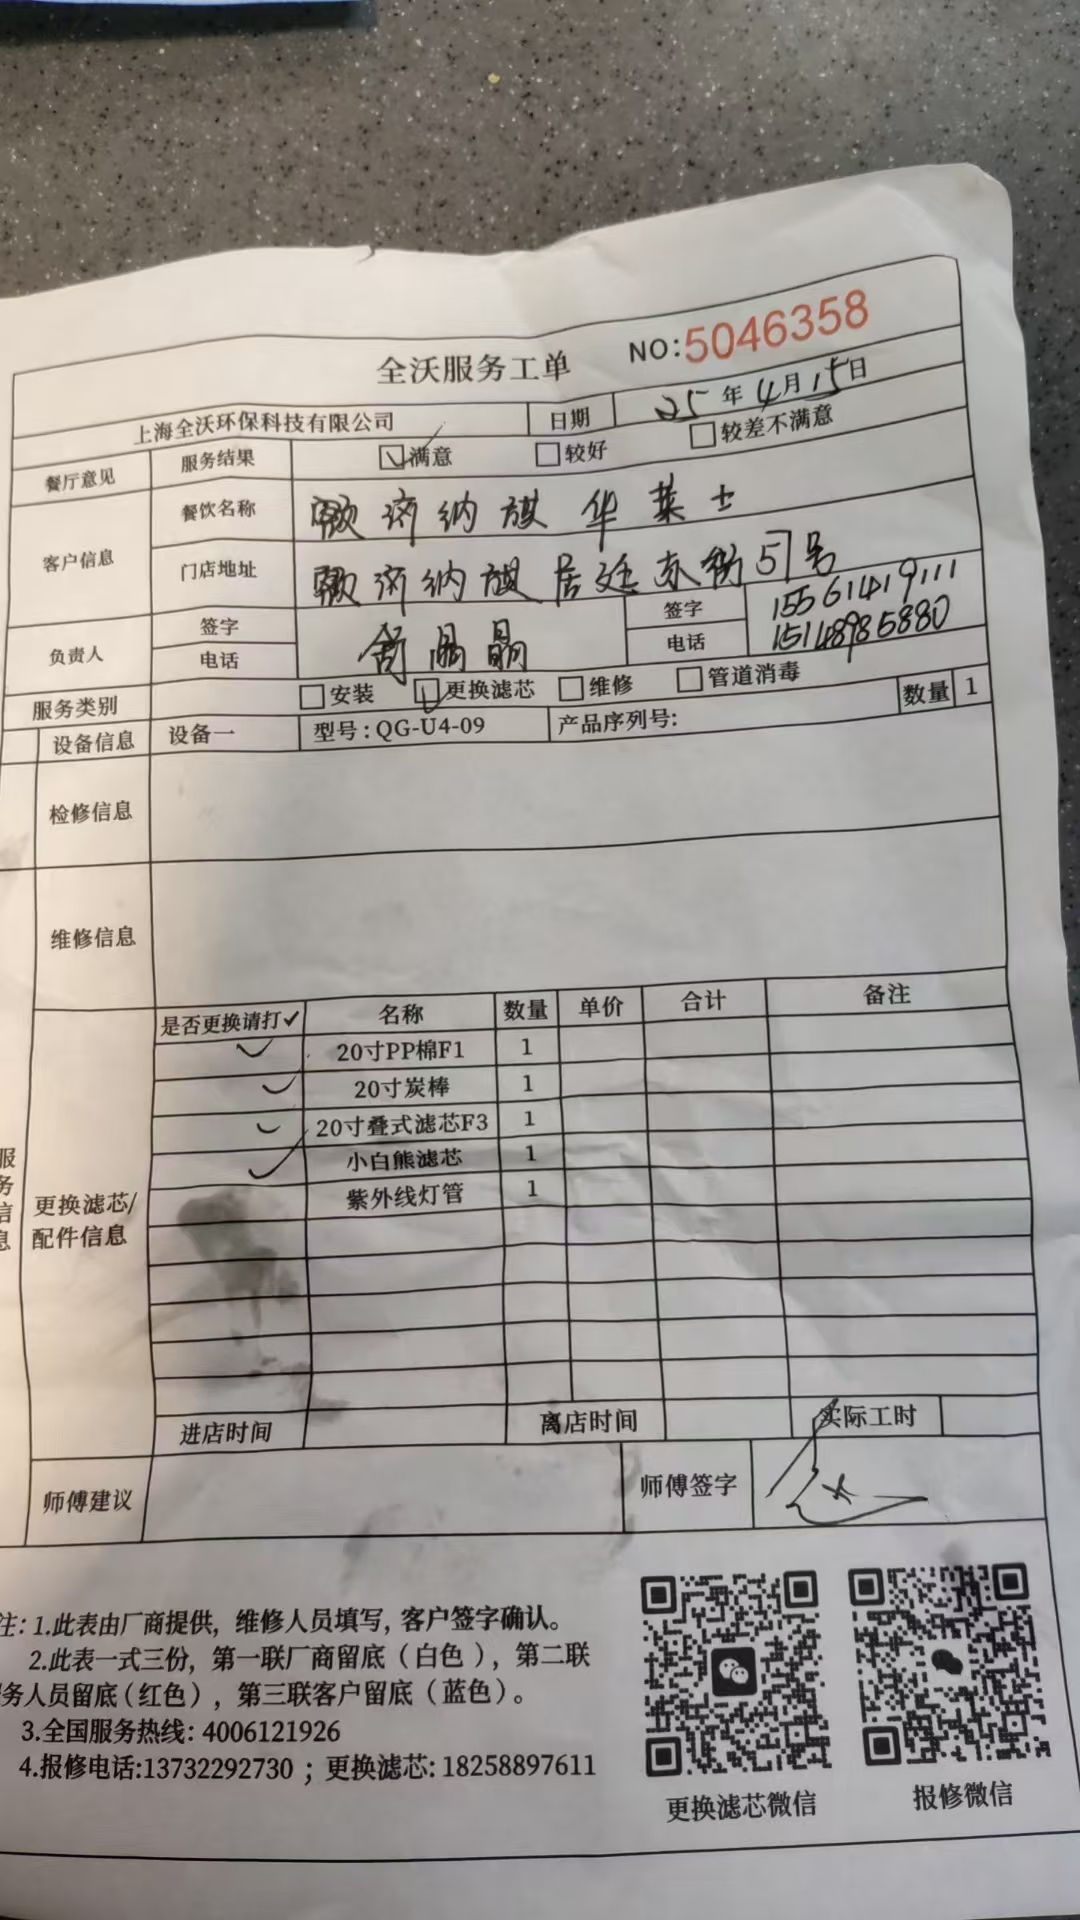 全沃服务工单 NO:5046358
上海全沃环保科技有限公司 日期 25年4月15日
餐厅意见 服务结果 满意 较好 较差不满意
客户信息 餐饮名称 额济纳旗华莱士
门店地址 额济纳旗居延东街51号
负责人 签字 电话 舒晶晶 签字 电话 15561419111
15148985880
服务类别 安装 更换滤芯 维修 管道消毒
设备信息 设备一 型号:QG-U4-09 产品序列号: 数量 1
检修信息
维修信息
服务信息
更换滤芯/配件信息
是否更换请打✓ 名称 数量 单价 合计 备注
✓ 20寸PP棉F1 1
✓ 20寸炭棒 1
✓ 20寸叠式滤芯F3 1
✓ 小白熊滤芯 1
紫外线灯管 1
进店时间 离店时间 实际工时
师傅建议 师傅签字
注:1.此表由厂商提供,维修人员填写,客户签字确认。
2.此表一式三份,第一联厂商留底(白色),第二联
务人员留底(红色),第三联客户留底(蓝色)。
3.全国服务热线:4006121926
4.报修电话:13732292730;更换滤芯:18258897611
更换滤芯微信 报修微信